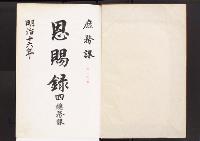 庶務課
恩賜録
四
総務課
明治十六年